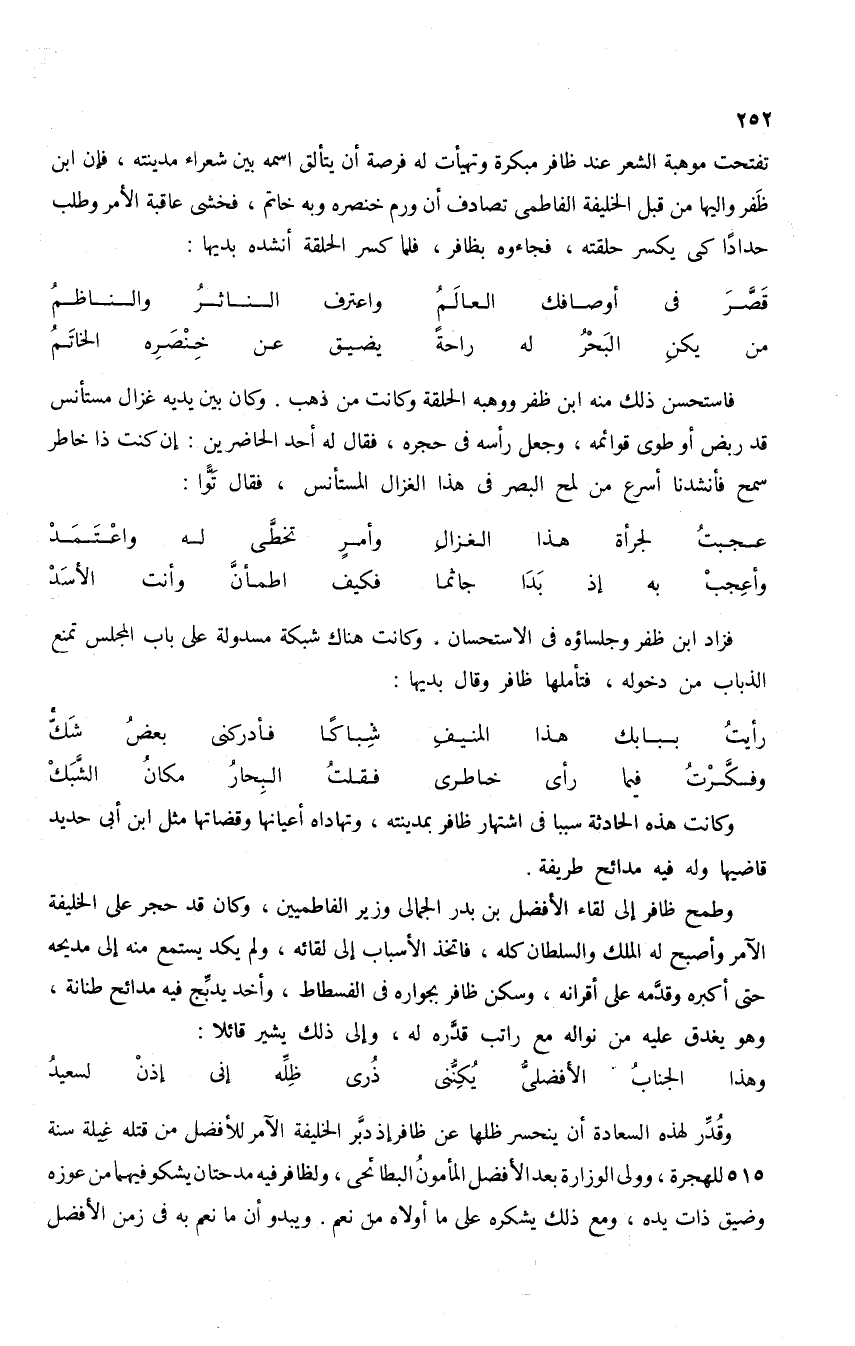 ٢٥٢
تفتحت موهبة الشعر عند ظافر مبكرة وتهيأت له فرصة أن يتألق اسمه بين شعراء مدينته ، فإن ابن
ظَفر واليها من قبل الخليفة الفاطمى تصادف أن ورم خنصره وبه خاتم ، فخشى عاقبة الأمر وطلب
حدادًا كى يكسر حلقته ، فجاءوه بظافر ، فلما كسر الحلقة أنشده بديها :
قَصَّرَ فى أوصافك العالَمُ واعترف الناثرُ والناظمُ
من يكنِ البَحْرُ له راحةً يضيق عن خِنْصَرِه الخاتَمُ
فاستحسن ذلك منه ابن ظفر ووهبه الحلقة وكانت من ذهب . وكان بين يديه غزال مستأنس
قد ربض أو طوى قوائمه ، وجعل رأسه فى حجره ، فقال له أحد الحاضرين : إن كنت ذا خاطر
سمح فأنشدنا أسرع من لمح البصر فى هذا الغزال المستأنس ، فقال تَوًّا :
عجبتُ لجرأة هذا الغزالِ وأمرٍ تخطَّى له واعْتَمَدْ
وأعجِبْ به إذ بَدَا جاثما فكيف اطمأنَّ وأنت الأسَدْ
فزاد ابن ظفر وجلساؤه فى الاستحسان . وكانت هناك شبكة مسدولة على باب المجلس تمنع
الذباب من دخوله ، فتأملها ظافر وقال بديها :
رأيتُ ببابك هذا المنيفِ شِباكًا فأدركنى بعضُ شَكّْ
وفكَّرْتُ فيما رأى خاطرى فقلتُ البِحارُ مكانُ الشَّبَكْ
وكانت هذه الحادثة سببا فى اشتهار ظافر بمدينته ، وتهاداه أعيانها وقضاتها مثل ابن أبى حديد
قاضيها وله فيه مدائح طريفة .
وطمح ظافر إلى لقاء الأفضل بن بدر الجمالى وزير الفاطميين ، وكان قد حجر على الخليفة
الآمر وأصبح له الملك والسلطان كله ، فاتخذ الأسباب إلى لقائه ، ولم يكد يستمع منه إلى مديحه
حتى أكبره وقدَّمه على أقرانه ، وسكن ظافر بجواره فى الفسطاط ، وأخد يدبِّج فيه مدائح طنانة ،
وهو يغدق عليه من نواله مع راتب قدَّره له ، وإلى ذلك يشير قائلا :
وهذا الجنابُ الأفضلىُّ يُكِنُّنى ذُرى ظِلِّه إنى إذنْ لسعيدُ
وقُدِّر لهذه السعادة أن ينحسر ظلها عن ظافر إذ دبَّر الخليفة الآمر للأفضل من قتله غِيلة سنة
٥١٥ للهجرة ، وولى الوزارة بعد الأفضل المأمونُ البطائحى ، ولظافر فيه مدحتان يشكو فيهما من عوزه
وضيق ذات يده ، ومع ذلك يشكره على ما أولاه من نعم . ويبدو أن ما نعم به فى زمن الأفضل